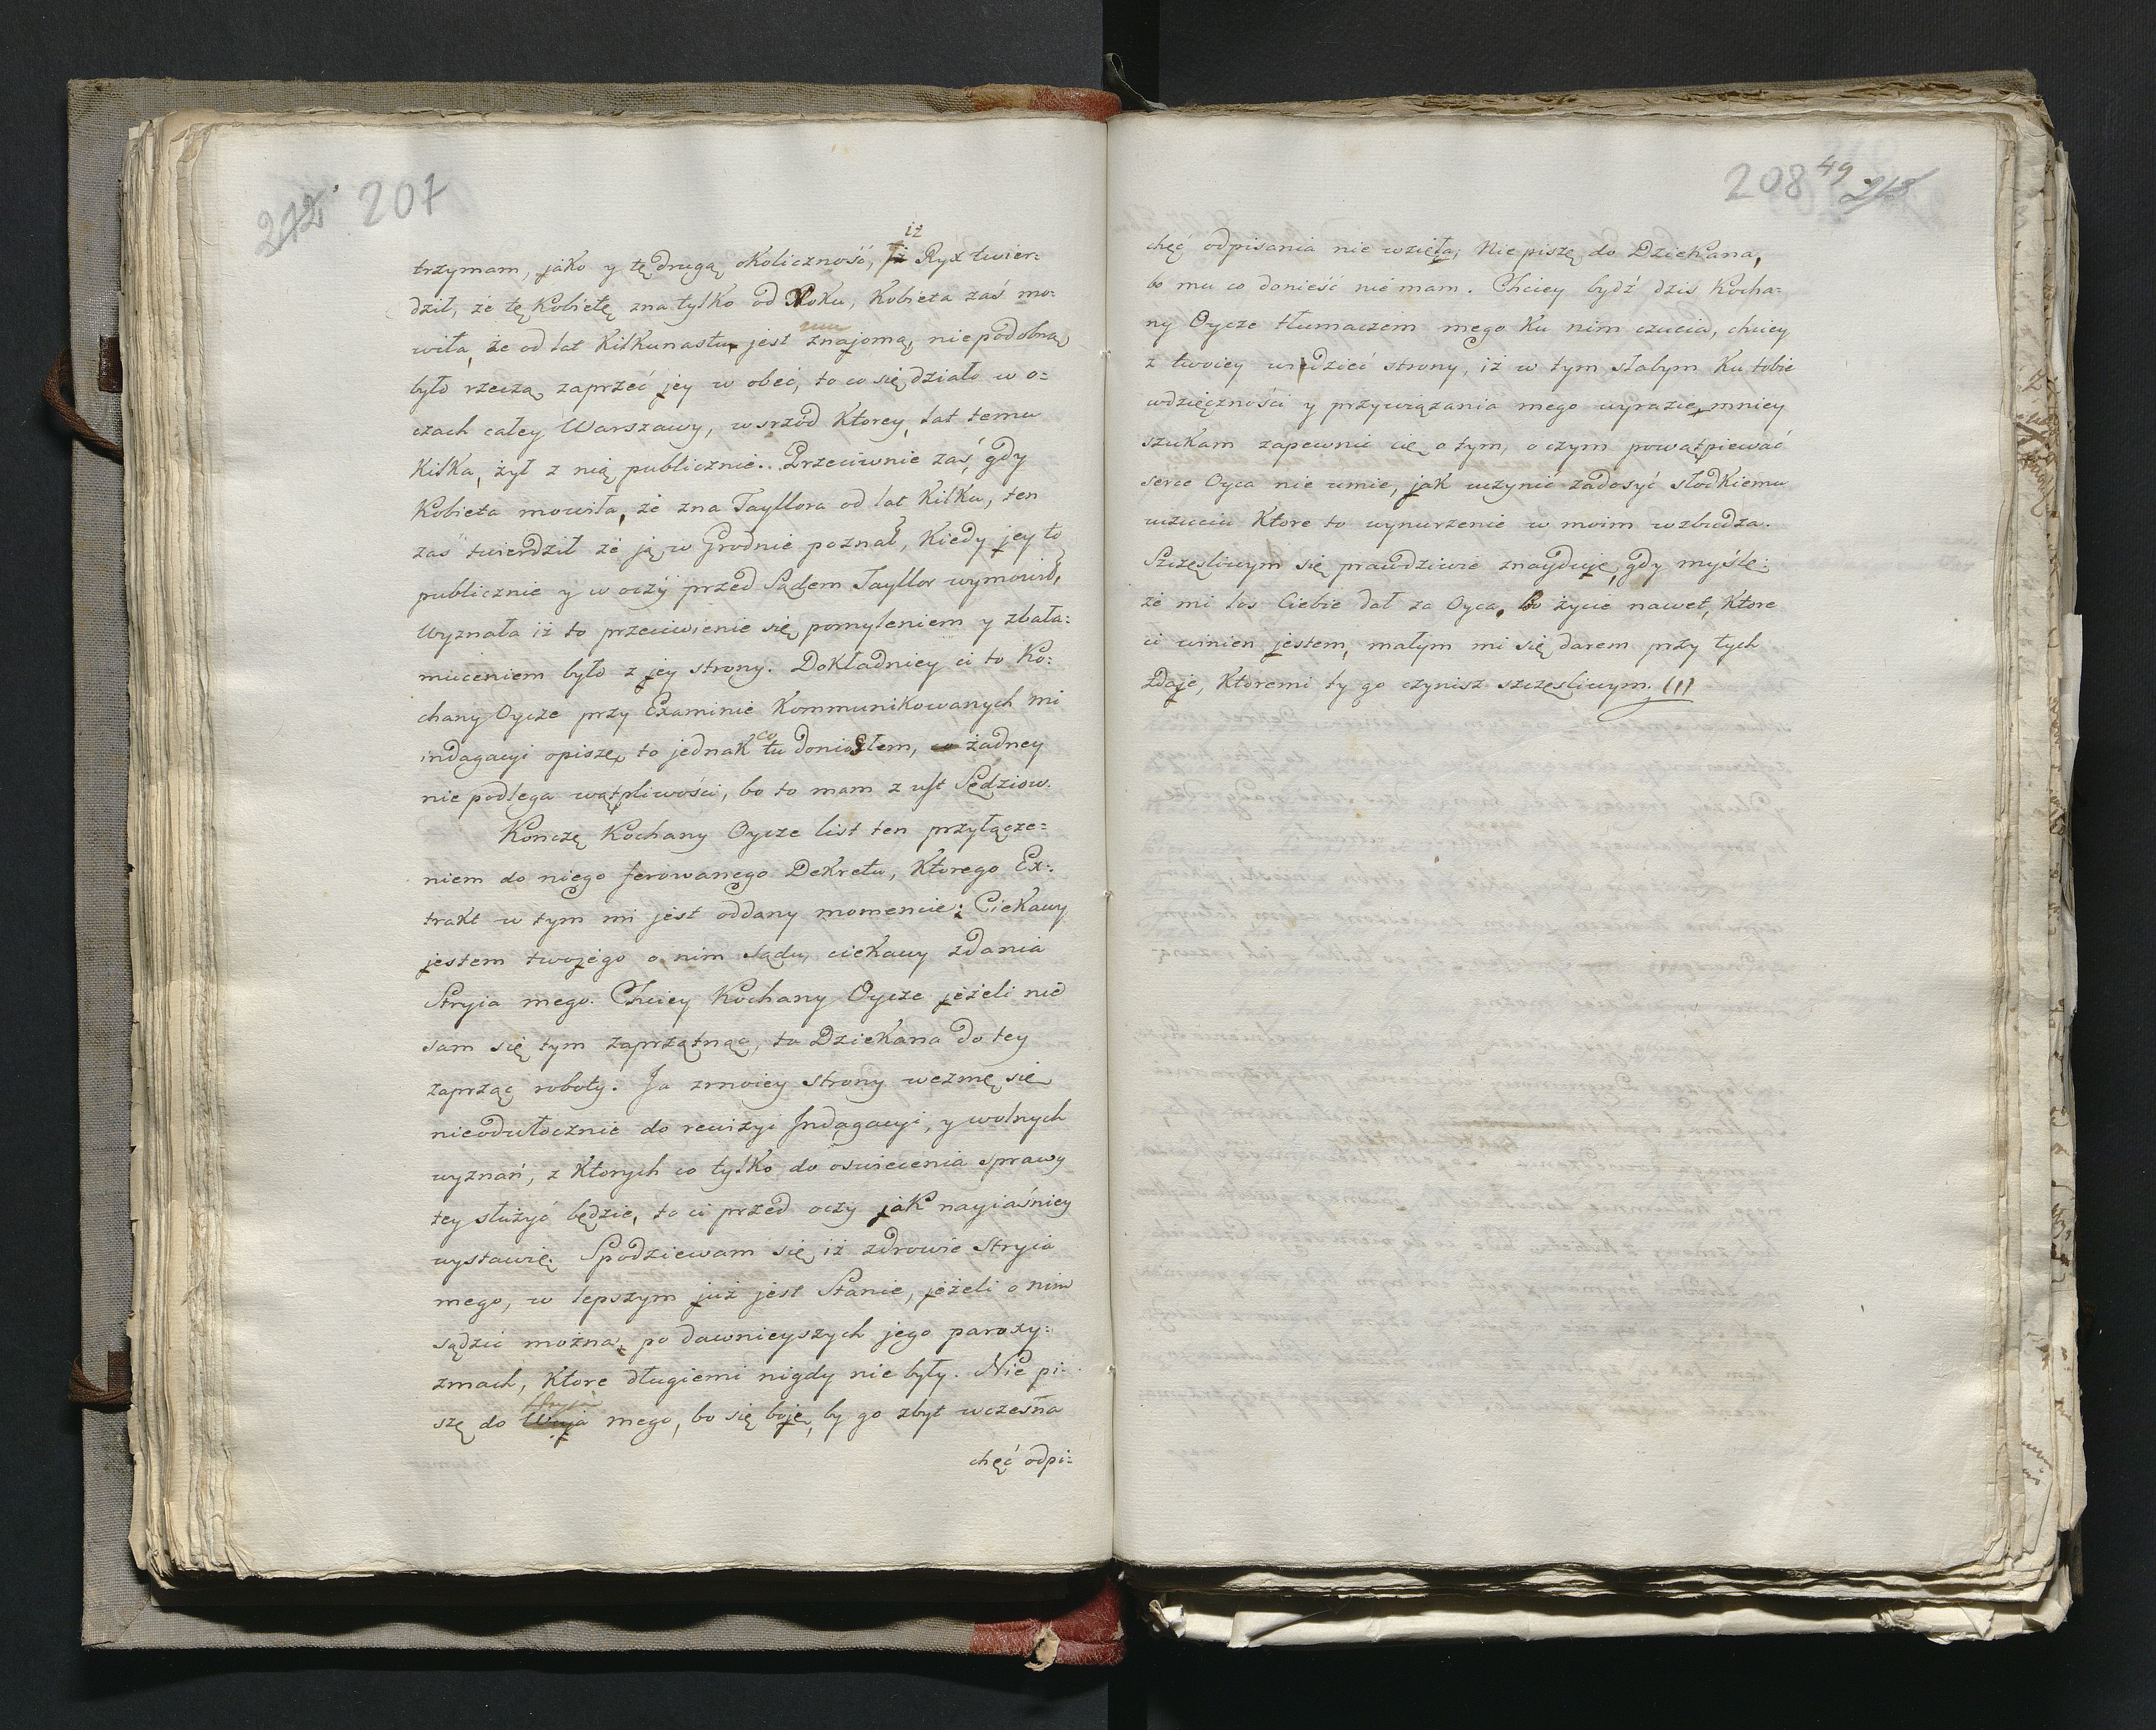 212 207
iż
trzymam, jako y tę drugą okoliczność, iż Ryx twier=
dził, że tę kobietę zna tylko od Roku, kobieta zaś mo=
mu
wiła, że od lat kilkunastu jest znajomą, niepodobną
było rzeczą zaprzeć jey w obec, to co się działo w o=
czach całey Warszawy, wsrzód ktorey, lat temu
kilka, żył z nią publicznie. Przeciwnie zaś, gdy
kobieta mowiła, że zna Tayllora od lat kilku, ten
zaś twierdził że ją w Grodnie poznał, kiedy jey to
publicznie y w oczy przed Sądem Tayllor wymowił,
wyznała iż to przeciwienie się pomyleniem y zbała=
muceniem było z jey strony. Dokładniey ci to Ko=
chany Oycze przy Examinie kommunikowanych mi
co
indagacyi opiszę, to jednak tu doniosłem, co żadney
nie podlega wątpliwości, bo to mam z ust Sędziow.
Kończę Kochany Oycze list ten przyłącze=
niem do niego ferowanego Dekretu, ktorego Ex=
trakt w tym mi jest oddany momencie; Ciekawy
jestem twojego o nim sądu, ciekawy zdania
Stryia mego. Chciey Kochany Oycze jeżeli nie
sam się tym zaprzątnąć, to Dziekana do tey
zaprząć roboty. Ja z moiey strony wezmę się
nieodwłocznie do rewizyi Indagacyi, y wolnych
wyznań, z ktorych co tylko do oswiecenia sprawy
tey służyć będzie, to ci przed oczy jak nayiaśniey
wystawię. Spodziewam się, iż zdrowie Stryia
mego, w lepszym już jest Stanie, jeżeli o nim
sądzić można, po dawnieyszych jego paroxy=
zmach, ktore długiemi nigdy nie były. Nie pi=
Stryia
szę do Wuja mego, bo się boję, by go zbyt wczesna
chęć odpi=
208 49 213
chęć odpisania nie wzięła; Nie piszę do Dziekana,
bo mu co donieść nie mam. Chciey bydź dziś Kocha=
ny Oycze tłumaczem mego ku nim czucia, chciey
z twoiey wiedzieć strony, iż w tym słabym ku tobie
wdzięczności y przywiązania mego wyrazie, mniey
szukam zapewnić cię o tym, o czym powątpiewać
serce Oyca nie umie, jak uczynić zadosyć słodkiemu
uczuciu ktore to wynurzenie w moim wzbudza.
Szczęsliwym się prawdziwie znayduję, gdy myślę:
że mi los Ciebie dał za Oyca, bo życie nawet, ktore
ci winien jestem, małym mi się darem przy tych
zdaje, ktoremi ty go czynisz szczęsliwym.